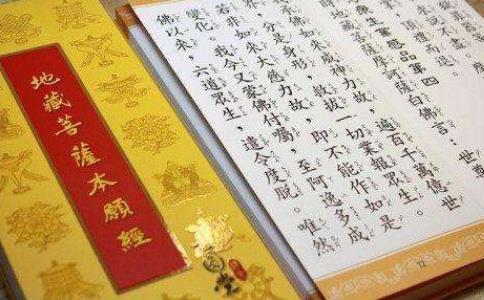 地藏菩薩本願經
說不盡。
頂禮而退。
眾生業感品第四
菩薩摩訶薩白佛言：世尊
佛如來威神力故，遍百千萬億世
分是身形，救拔一切業報眾生。
若非如來大慈力故，即不能作如是
變化。我今又蒙佛付囑，至阿逸多成
佛以來，六道眾生，遣令度脫。唯然
12